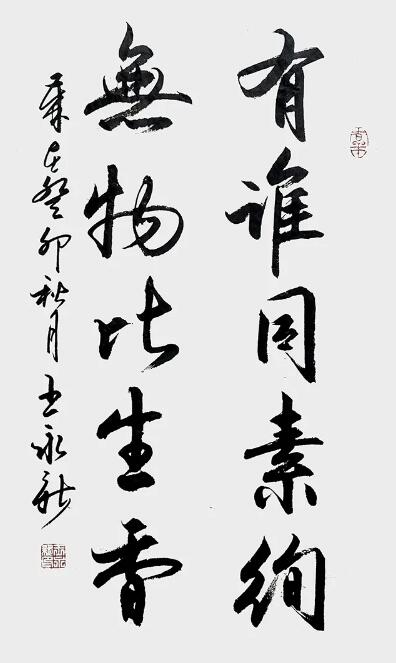 有谁同素绚
無物比生香
歲在癸卯秋月王永新